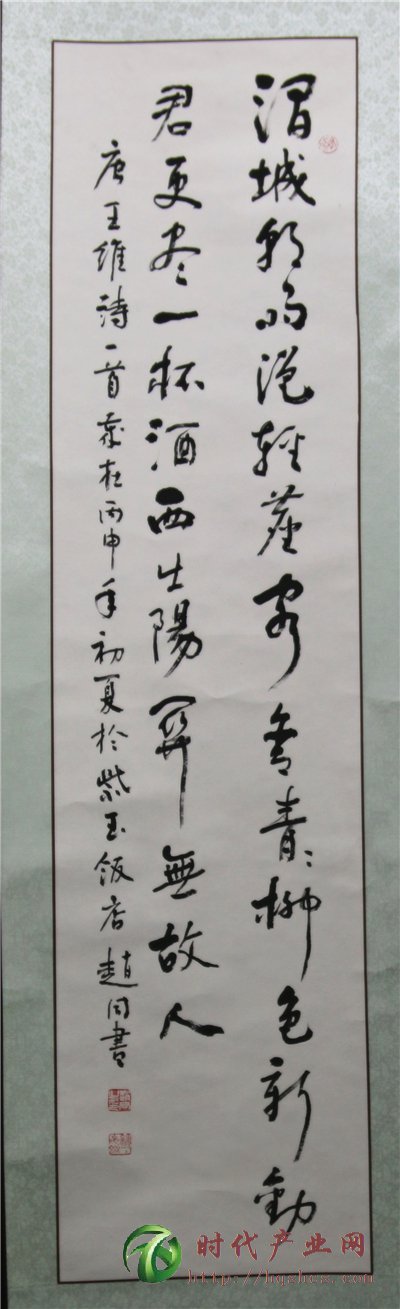 渭城朝雨浥輕塵客舍青青柳色新勸
君更尽一杯酒西出陽關無故人
唐王維詩一首歲在丙申年初夏於紫玉飯店趙同書
时代产业网